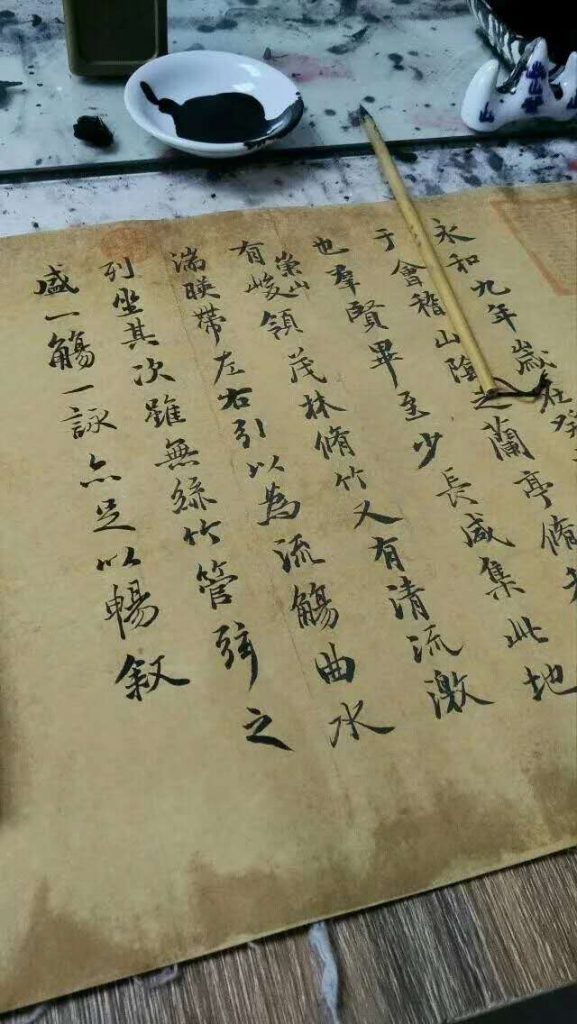 永和九年歲在癸
于會稽山陰之蘭亭脩
也羣賢畢至少長咸集此地
有崇山峻領茂林脩竹又有清流激
湍暎帶左右引以為流觴曲水
列坐其次雖無絲竹管弦之
盛一觴一詠亦足以暢叙